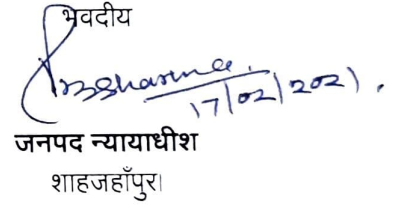 भवदीय
17/02/2021.
जनपद न्यायाधीश
शाहजहाँपुर।